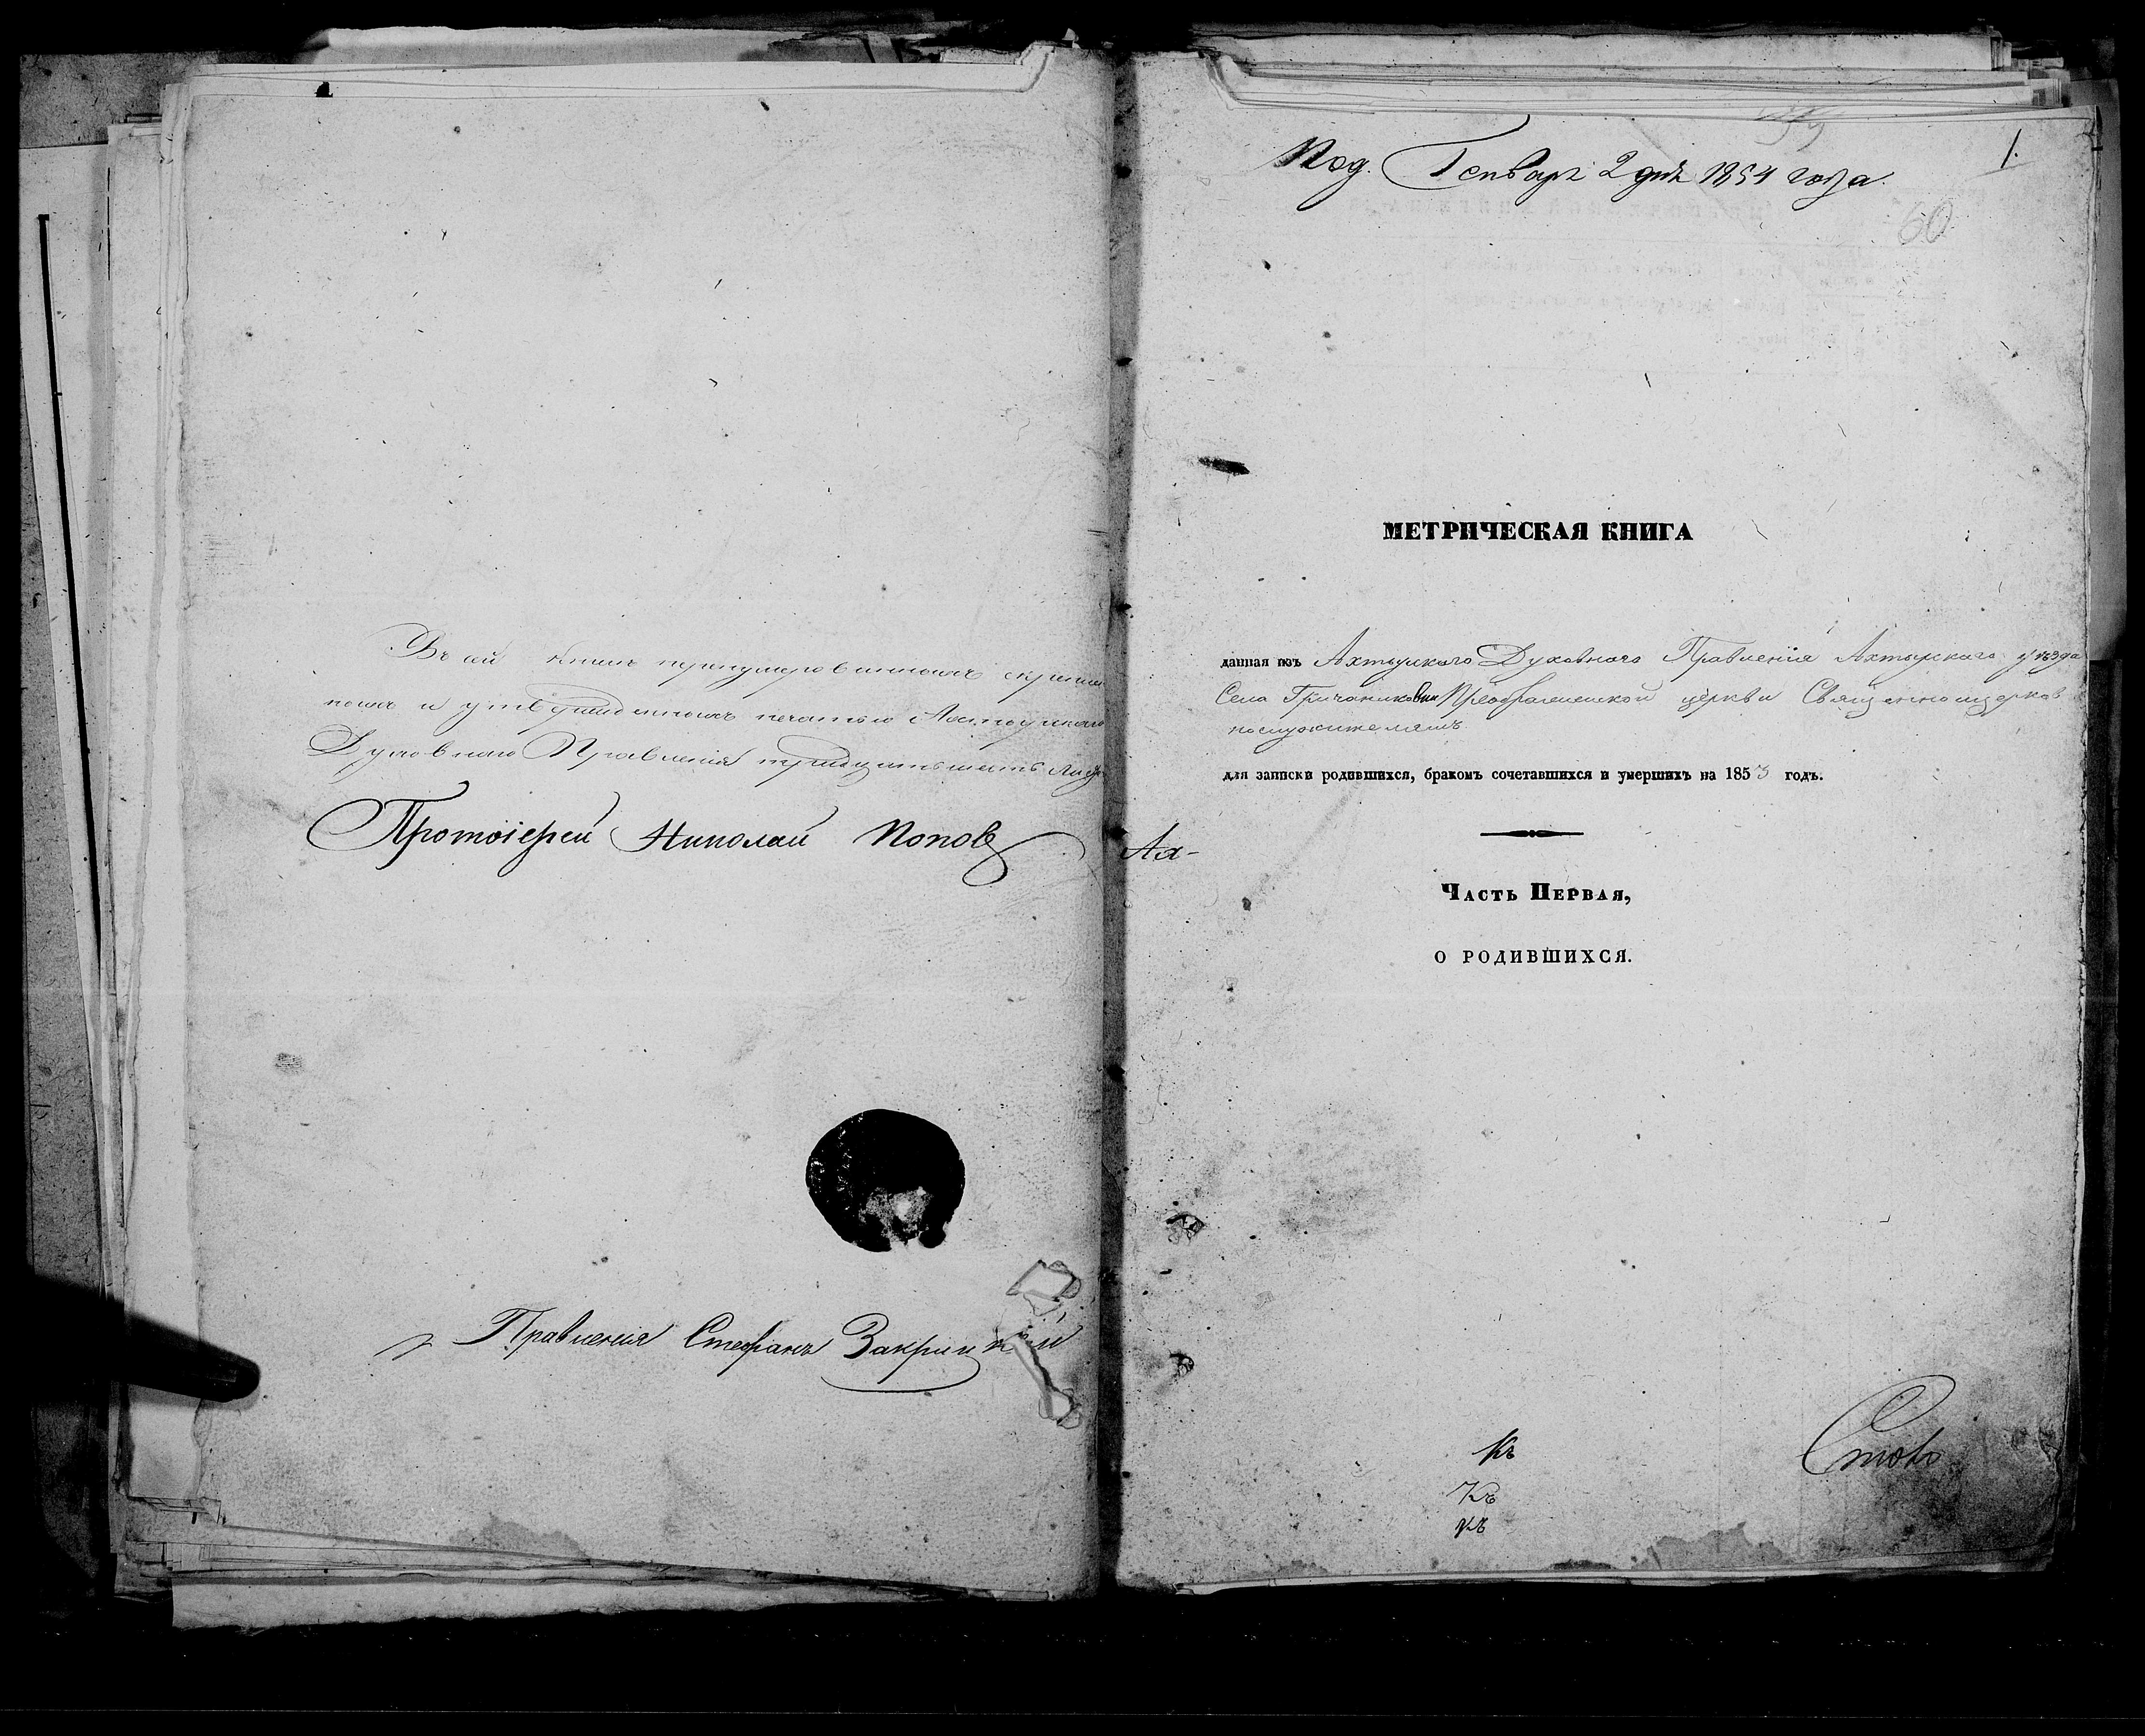 Въ сей книге перенумерованныхъ скреплен
ныхъ и утвержденныхъ печатью Ахтырскаго
Духовнаго Правленія тридцать шесть листо
Протоіерей Николай Попов
Правленія Стефанъ
Под. Генваря 2 дня 1854 года.
1.
60
МЕТРИЧЕСКАЯ КНИГА
данная изъ Ахтырскаго Духовнаго Правленія Ахтырскаго уѣзда
Села Преображенской церкви Священноцерков
нослужителямъ
для записки родившихся, бракомъ сочетавшихся и умершихъ на 1853 годъ.
Ах-
Часть Первая,
О РОДИВШИХСЯ.
Къ
Къ
Къ